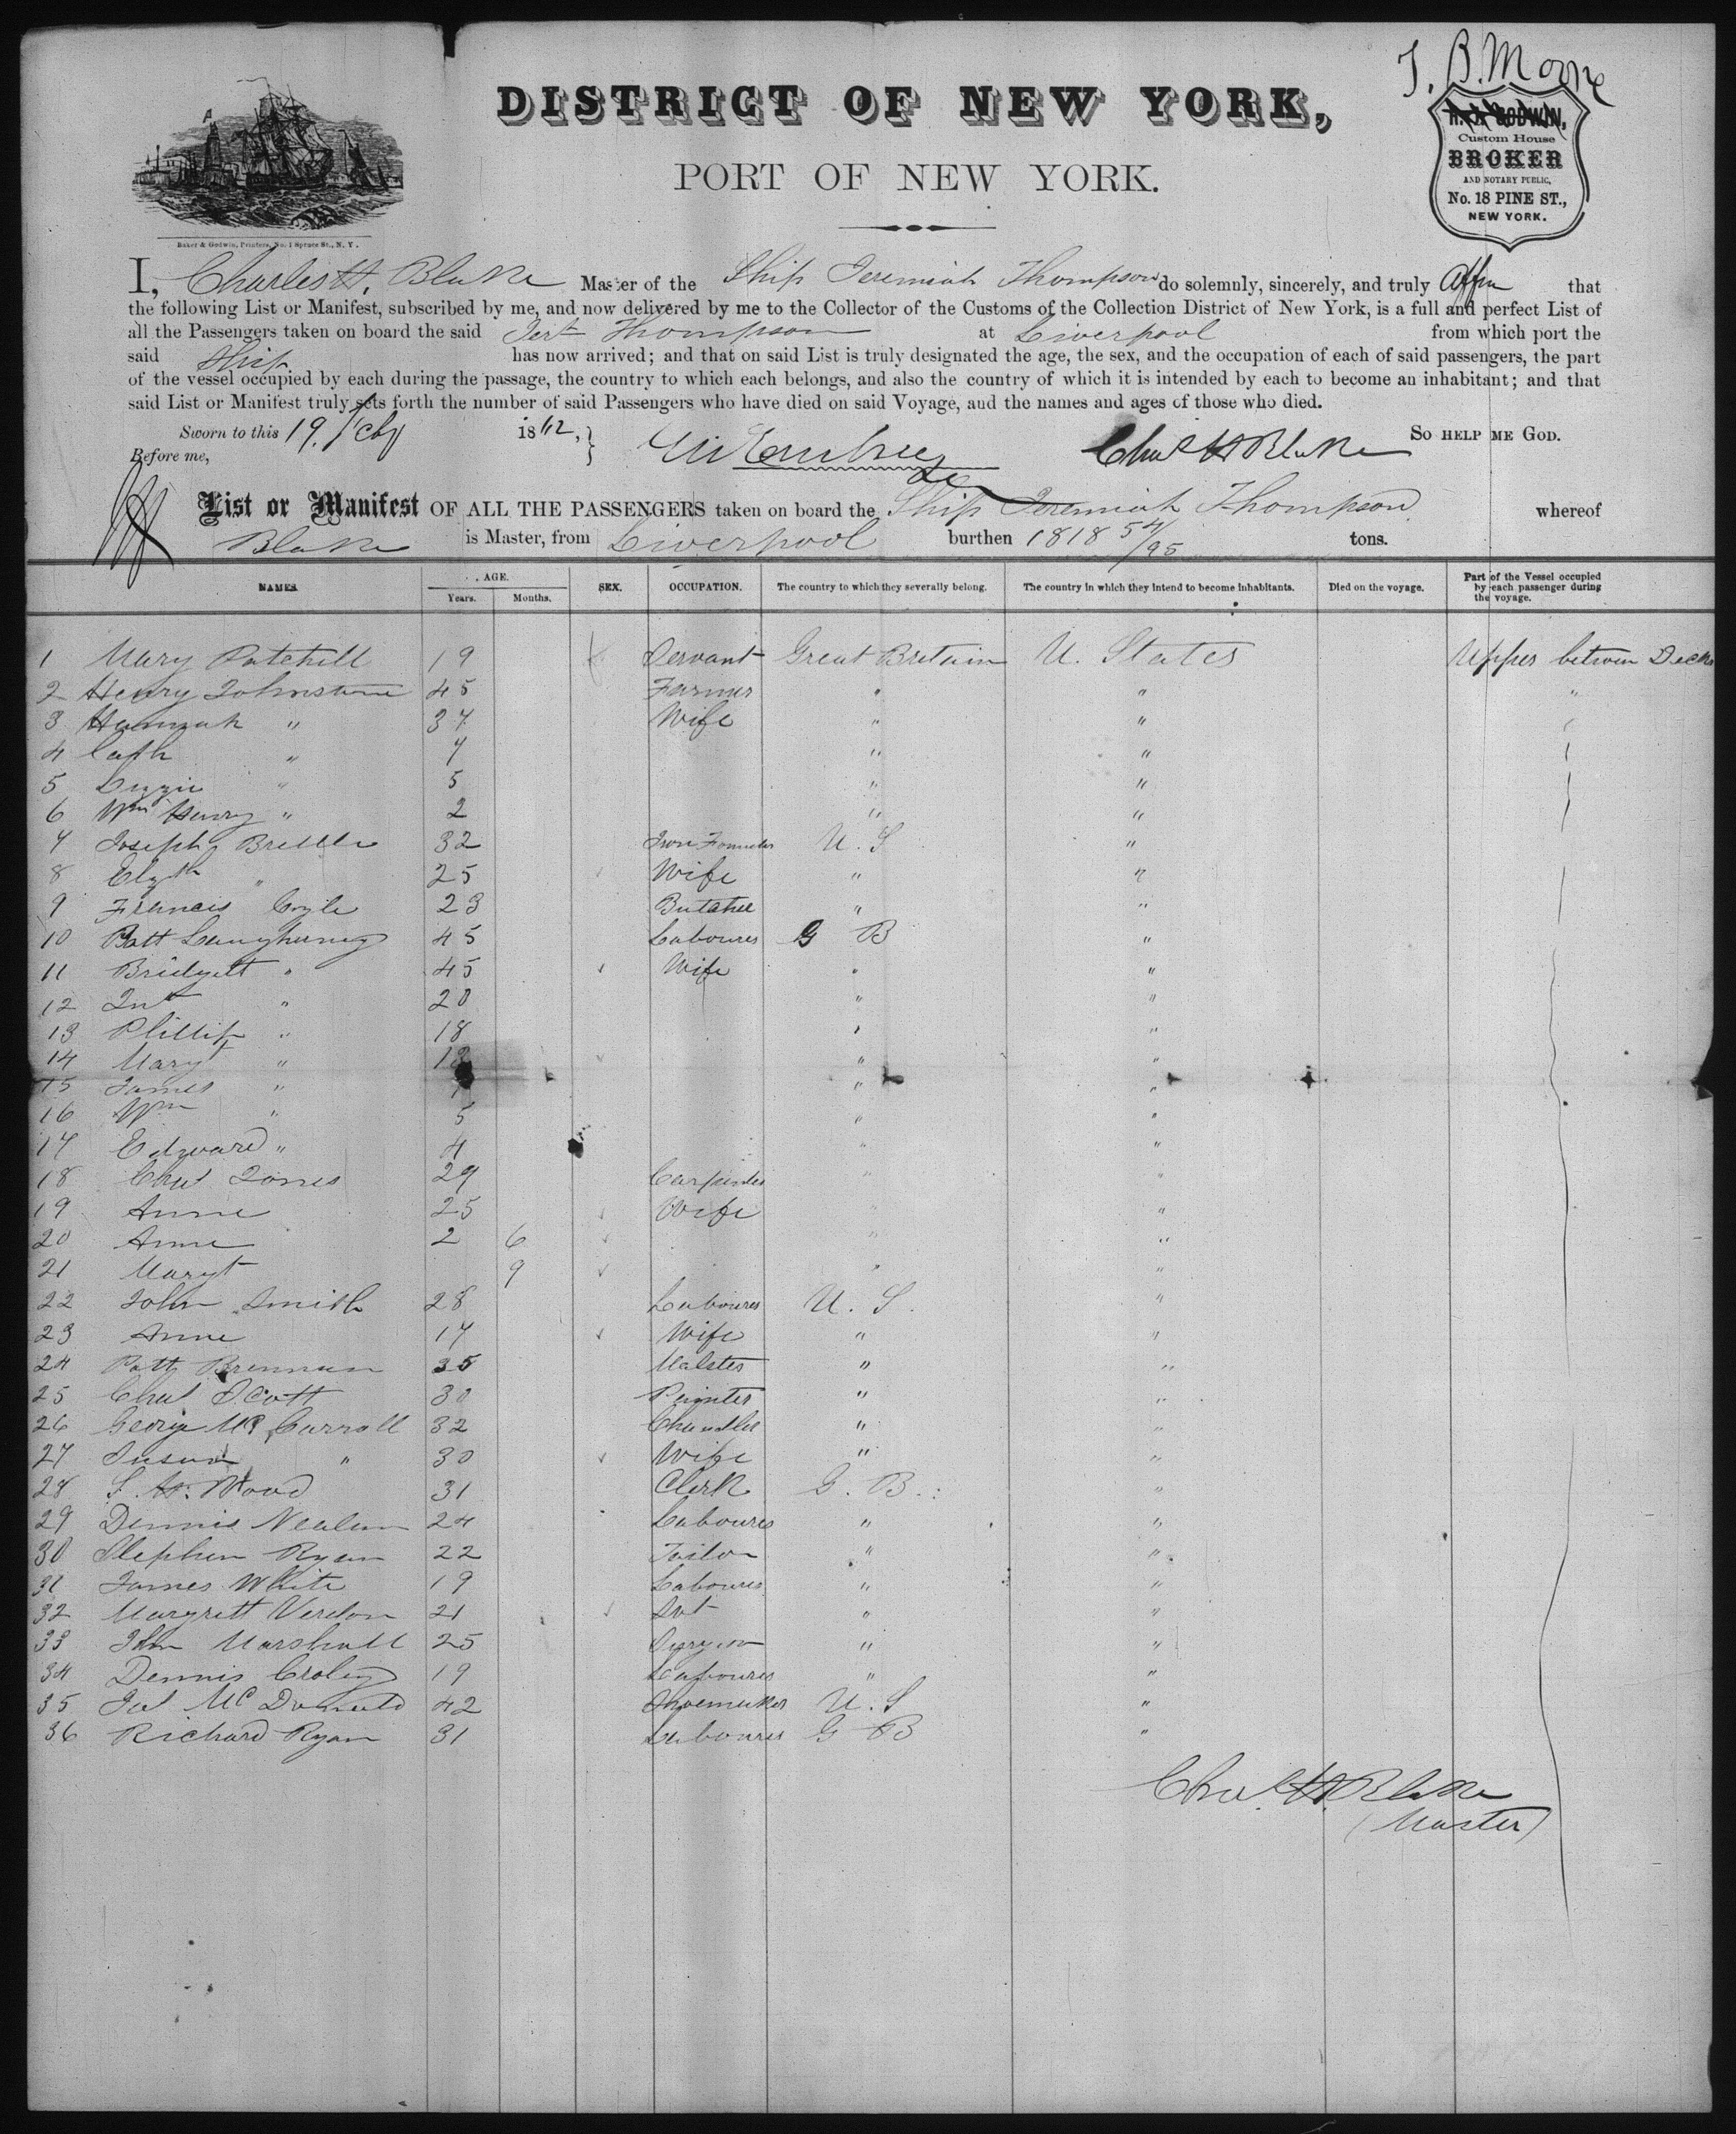 J. B. Moore
DISTRICT OF NEW YORK,
PORT OF NEW YORK.
GODWIN,
Custom House
BROKER
AND NOTARY PUBLIC,
No. 18 PINE ST.,
NEW YORK.
Baker & Godwin, Printers, No. 1 Spruce St., N. Y.
I, Charles H. Blake Master of the Ship Jeremiah Thompson do solemnly, sincerely, and truly Affirm that
the following List or Manifest, subscribed by me, and now delivered by me to the Collector of the Customs of the Collection District of New York, is a full and perfect List of
all the Passengers taken on board the said Jerh Thompson at Liverpool from which port the
said Ship has now arrived; and that on said List is truly designated the age, the sex, and the occupation of each of said passengers, the part
of the vessel occupied by each during the passage, the country to which each belongs, and also the country of which it is intended by each to become an inhabitant; and that
said List or Manifest truly sets forth the number of said Passengers who have died on said Voyage, and the names and ages of those who died.
Sworn to this 19. Feby 1862, Chas H Blake SO HELP ME GOD.
Before me,
List or Manifest OF ALL THE PASSENGERS taken on board the Ship Jeremiah Thompson whereof
Blake is Master, from Liverpool burthen 1818 54/95 tons.
NAMES. AGE. Years. Months. SEX. OCCUPATION. The country to which they severally belong. The country in which they intend to become inhabitants. Died on the voyage. Part of the Vessel occupied by each passenger during the voyage.
1 Mary Patchill 19 Servant Great Britain U. States Upper between Decks
2 Henry Johnstone 45 Farmer " " "
3 Hannah " 37 Wife " "
4 Cath " 7 " "
5 Lizzie " 5 " "
6 Wm Henry " 2 " "
7 Joseph 32 Iron Founder U. S "
8 Elizth " 25 Wife " "
9 Francis Coyle 23 Butcher " "
10 Patt 45 Labourer G B "
11 Bridgett " 45 Wife " "
12 " 20 " "
13 Phillip " 18 " "
14 Mary " 13 " "
15 James " " "
16 Wm " 5 " "
17 Edward " 4 " "
18 Chas Jones 29 Carpenter " "
19 Anne 25 Wife " "
20 Anne 2 6 " "
21 Margt 9 " "
22 John Smith 28 Labourer U. S. "
23 Anne 17 Wife " "
24 Patt Brennan 35 Malster " "
25 Chas Scott 30 Painter " "
26 George Mc Carroll 32 Chandler " "
27 Susan " 30 Wife " "
28 S. H. Wood 31 Clerk G. B. "
29 Dennis Nealon 24 Labourer " "
30 Stephen Ryan 22 Tailor " "
31 James White 19 Labourer " "
32 Margrett Verdon 21 Svt " "
33 John Marshall 25 Surgeon " "
34 Dennis Croley 19 Labourer " "
35 Jas Mc Donald 42 Shoemaker U. S "
36 Richard Ryan 31 Labourer G B "
Chas. H. Blake
(Master)